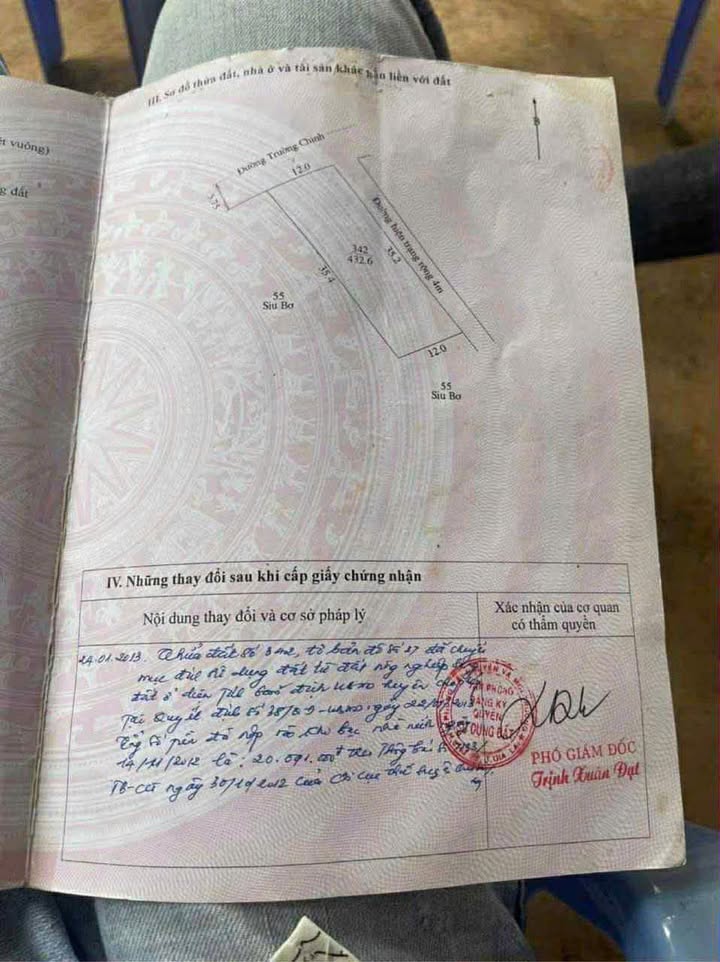 ét vuông)
g đất
III. Sơ đồ thửa đất, nhà ở và tài sản khác gắn liền với đất
B
Đường Trường Chinh
12.0
3.75
Đường hiện trạng rộng 4m
342
432.6
35.2
35.4
55
Siu Bơ
12.0
55
Siu Bơ
IV. Những thay đổi sau khi cấp giấy chứng nhận
Nội dung thay đổi và cơ sở pháp lý
Xác nhận của cơ quan
có thẩm quyền
24.01.2013. Thửa đất số 342, tờ bản đồ số 27 đã chuyển
mục đích sử dụng đất từ đất nông nghiệp
đất ở
Tại Quyết định số ngày
số tiền đã nộp vào kho bạc nhà nước ngày
14/11/2012 là: 20.091.000đ theo Thông báo số
TB-CCT ngày 30/10/2012 của Chi cục thuế huyện
VĂN PHÒNG
ĐĂNG KÝ
QUYỀN
SỬ DỤNG ĐẤT
PHÓ GIÁM ĐỐC
Trịnh Xuân Đạt